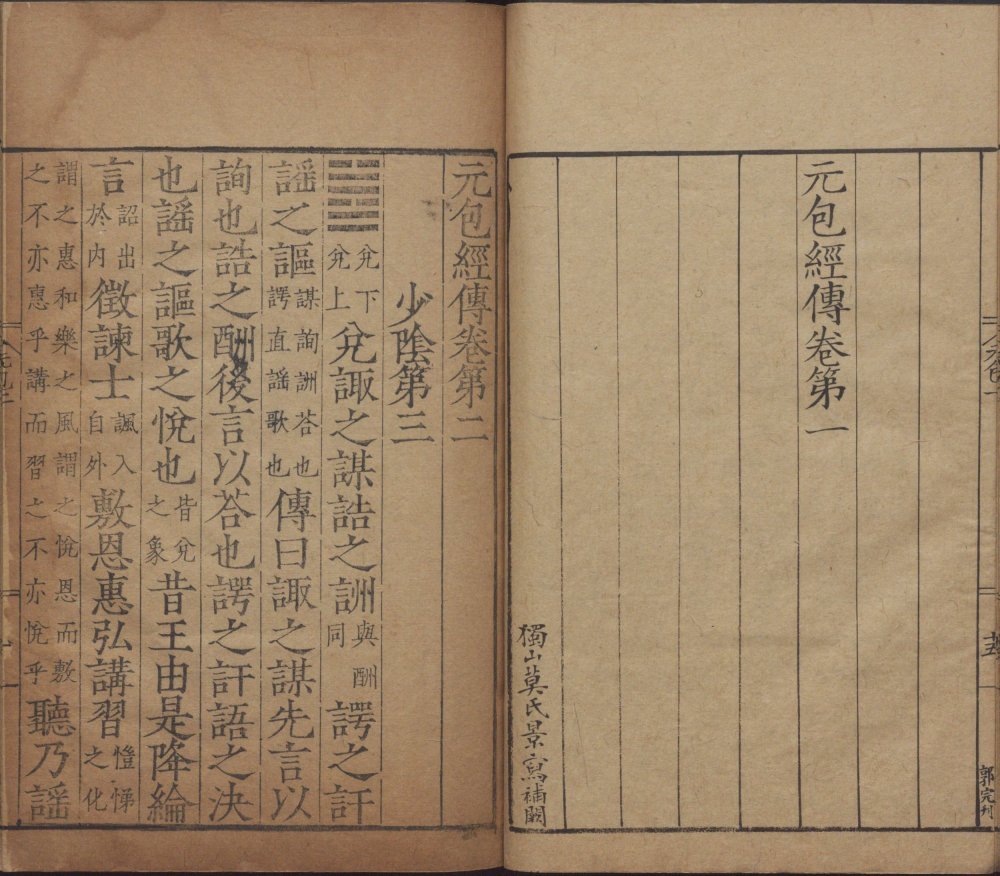 十五
郭完刊
元包經傳卷第一
獨山莫氏景寫補闕
元包經傳卷第二
少陰第三
䷹兊下兊上兊諏之謀誥之詶與酬同諤之訐
謡之謳謀詢詶荅也諤直謡歌也傳曰諏之謀先言以
詢也誥之酬後言以荅也諤之訐語之決
也謡之謳歌之悅也皆兊之象昔王由是降綸
言詔出於內徵諫士諷入自外敷恩惠弘講習愷悌之化
謂之惠和樂之風謂之悅恩而敷之不亦惠乎講而習之不亦悅乎聽乃謡